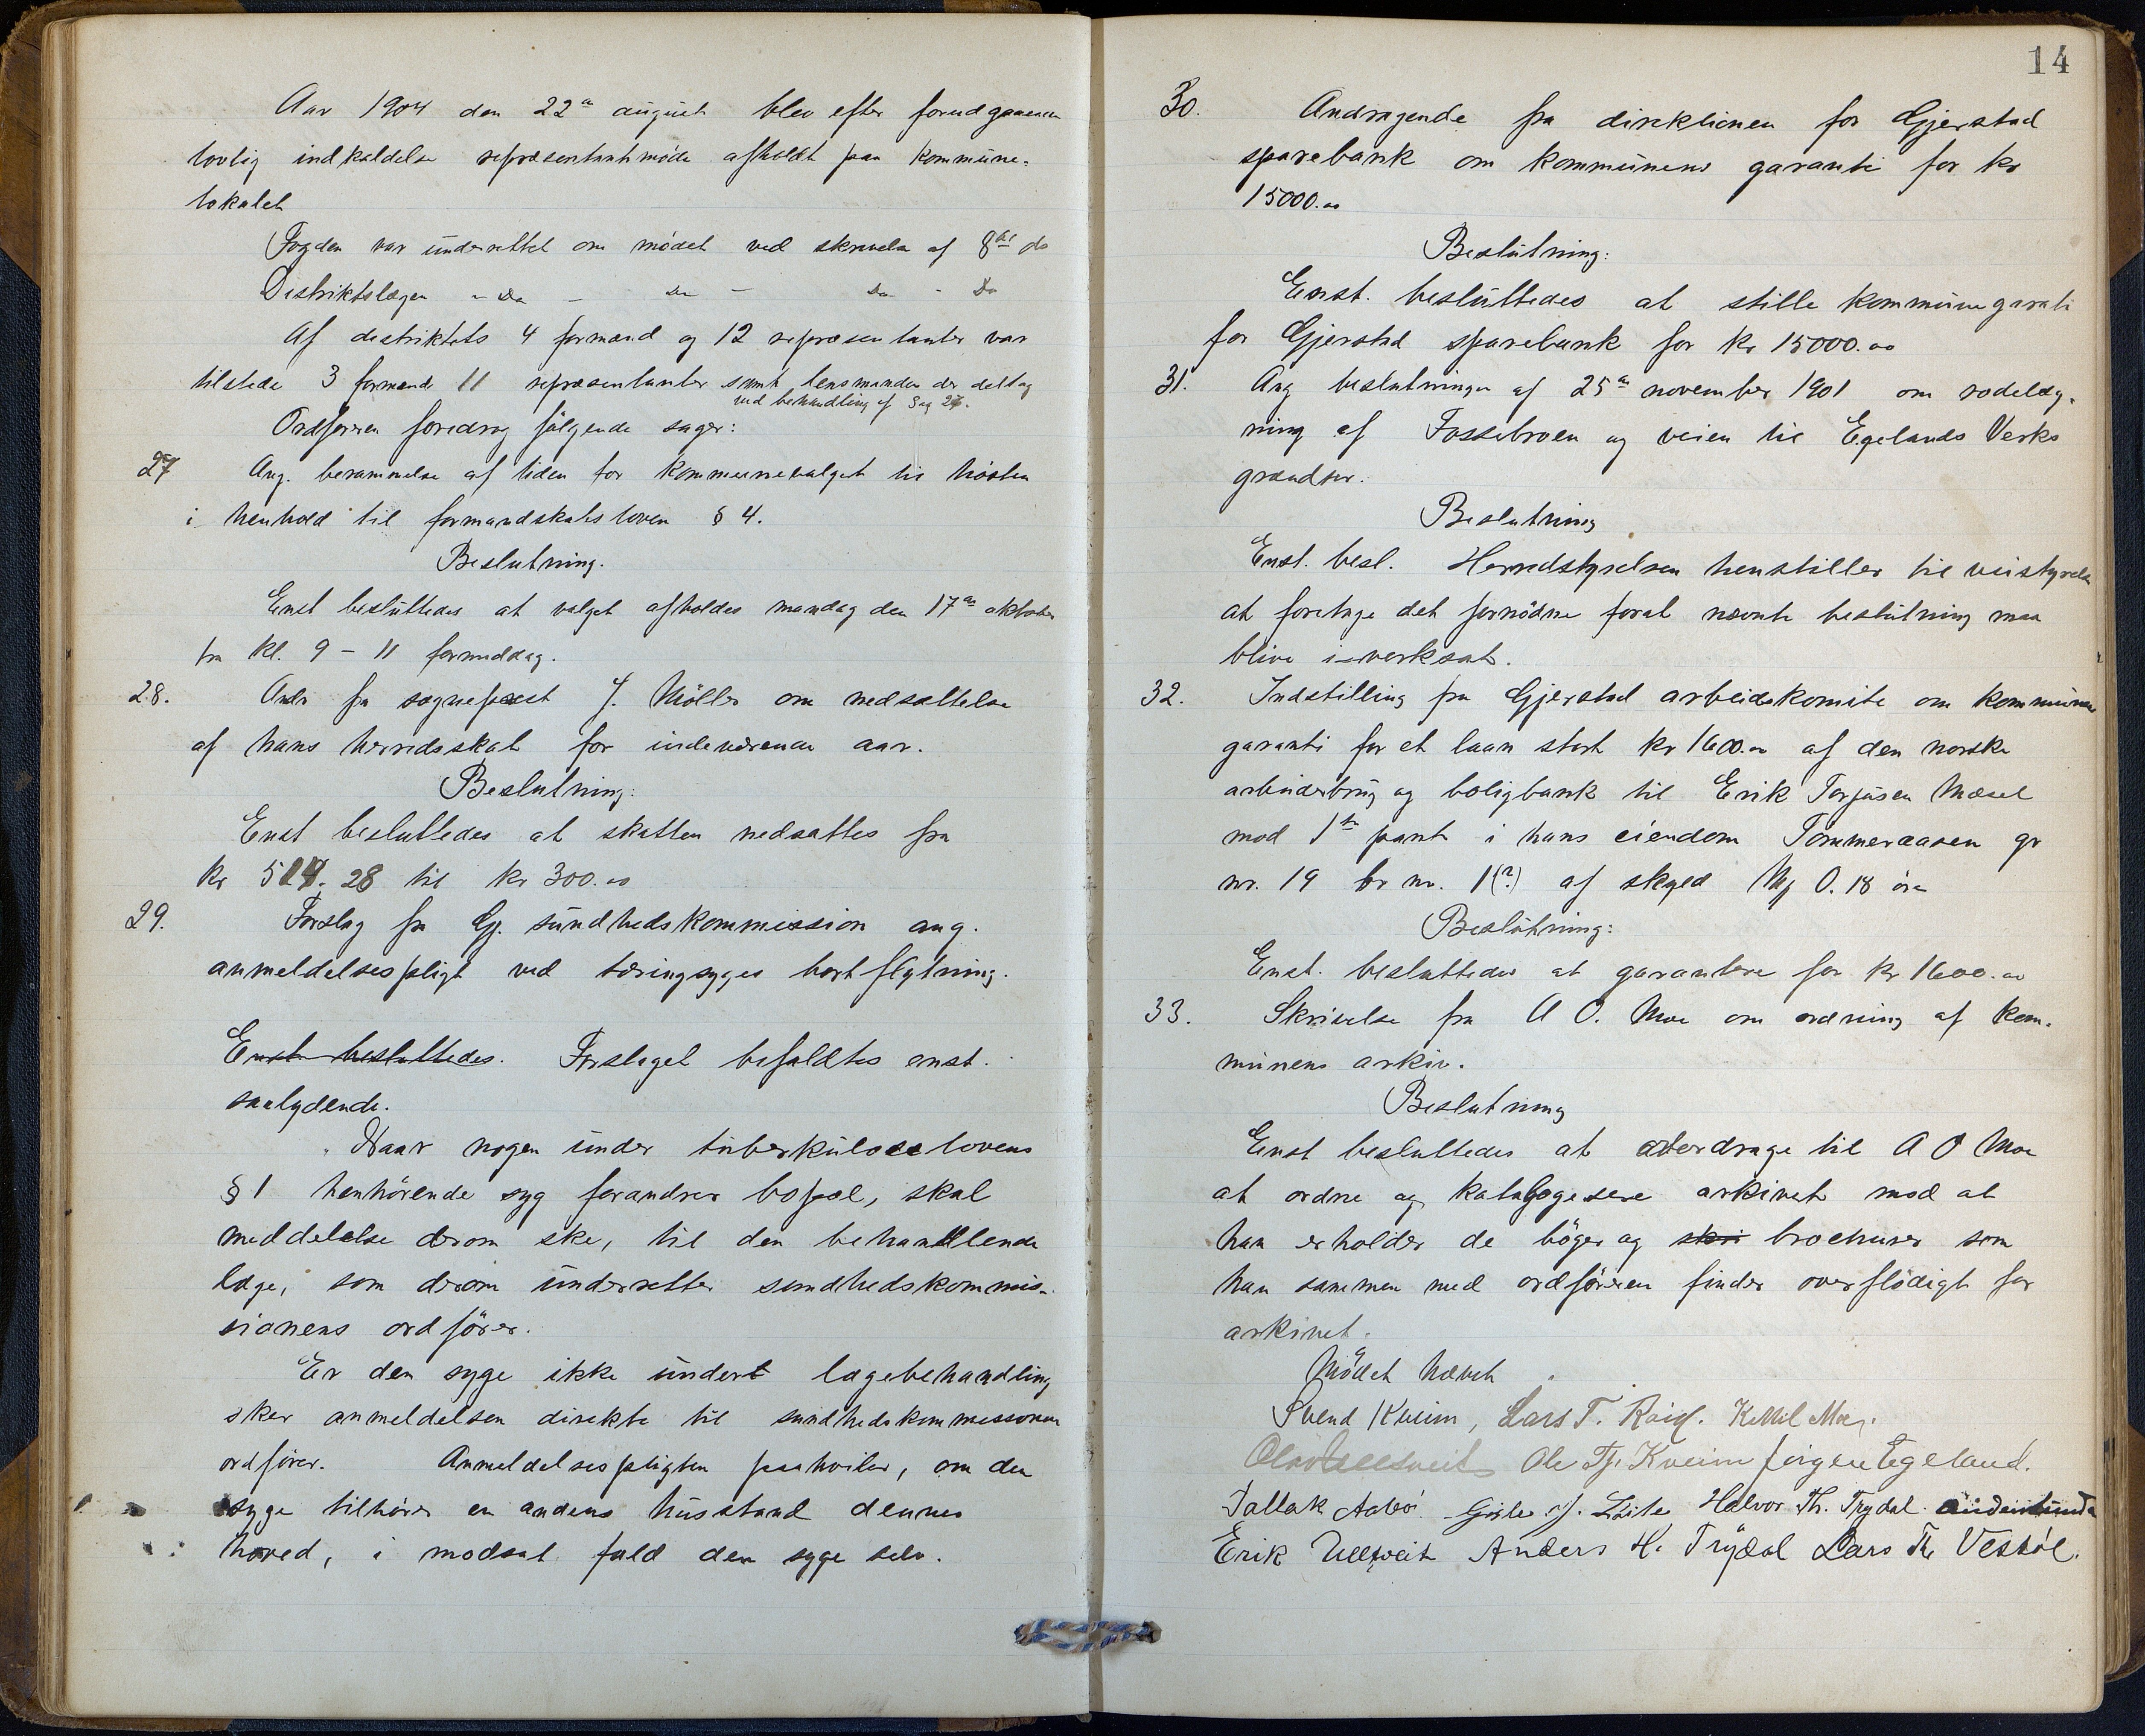 Aar 1904 den 22de august blev efter forudgaaende
lovlig indkaldelse repræsentantmøde afholdt paa kommune-
lokalet
Fogden var underrettet om mødet ved skrivelse af 8de ds
Distriktslægen - Do - Do - Do - Do
Af distriktets 4 formænd og 12 repræsentanter var
tilstede 3 formænd 11 repræsentanter samt lensmanden der deltog
ved behandling af Sag 27.
Ordføreren foredrog følgende sager:
27 Ang. berammelse af tiden for kommunevalget til høsten
i henhold til formandskabsloven § 4.
Beslutning.
Enst besluttedes at valget afholdes mandag den 17de oktober
fra kl. 9 - 11 formiddag.
28. Andr fra sogneprest J. Møller om nedsættelse
af hans herredsskat for indeværende aar.
Beslutning:
Enst besluttedes at skatten nedsattes fra
kr 514,28 til kr 300.00
29. Forslag fra Gj. sundhedskommission ang.
anmeldelsespligt ved tæringsyges bortflytning.
Enst besluttedes. Forslaget bifaldtes enst.
saalydende.
"Naar nogen under tuberkuloselovens
§ 1 henhørende syg forandrer bopæl, skal
meddelelse derom ske, til den behandlende
læge, som derom underretter sundhedskommis-
sionens ordfører.
Er den syge ikke under lægebehandling
sker anmeldelsen direkte til sundhedskommissionens
ordfører. Anmeldelsespligten paahviler, om den
syge tilhører en andens husstand dennes
hoved, i modsat fald den syge selv.
14
30. Andragende fra direktionen for Gjerstad
sparebank om kommunens garanti for kr
15000.00
Beslutning:
Enst. besluttedes at stille kommunegarati
for Gjerstad sparebank for kr 15000.00
31. Ang beslutningen af 25de november 1901 om rodelæg-
ning af Fossebroen og veien til Egelands Verks
grændser.
Beslutning
Enst. besl. Herredstyrelsen henstiller til veistyrelsen
at foretage det fornødne forat nævnte beslutning maa
blive iverksat.
32. Indstilling fra Gjerstad arbeidskomite om kommune
garanti for et laan stort kr 1600.00 af den norske
arbeiderbrug og boligbank til Erik Torjusen Mæsel
mod 1ste pant i hans eiendom Tømmeraasen gr
nr. 19 br nr. 1(?) af skyld Mk 0.18 øre
Beslutning:
Enst. besluttedes at garantere for kr 1600.00
33. Skrivelse fra A O. Moe om ordning af kom-
munens arkiv.
Beslutning
Enst besluttedes at overdrage til A O Moe
at ordne og katalogesere arkivet mod at
han erholder de bøger og skri brochurer som
han sammen med ordføreren finder overflødigt for
arkivet.
Mødet hævet
Svend Kveim, Lars T. Ketil Moe.
Ole Tj. Kveim Jørgen Egeland.
Tallak Aabø. J. Halvor Th. Trydal.
Erik Ulltveit Anders H. Trydal Lars Th Vestøl.